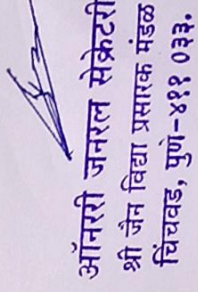 ऑनररी जनरल सेक्रेटरी
श्री जैन विद्या प्रसारक मंडळ
चिंचवड, पुणे-४११ ०३३.